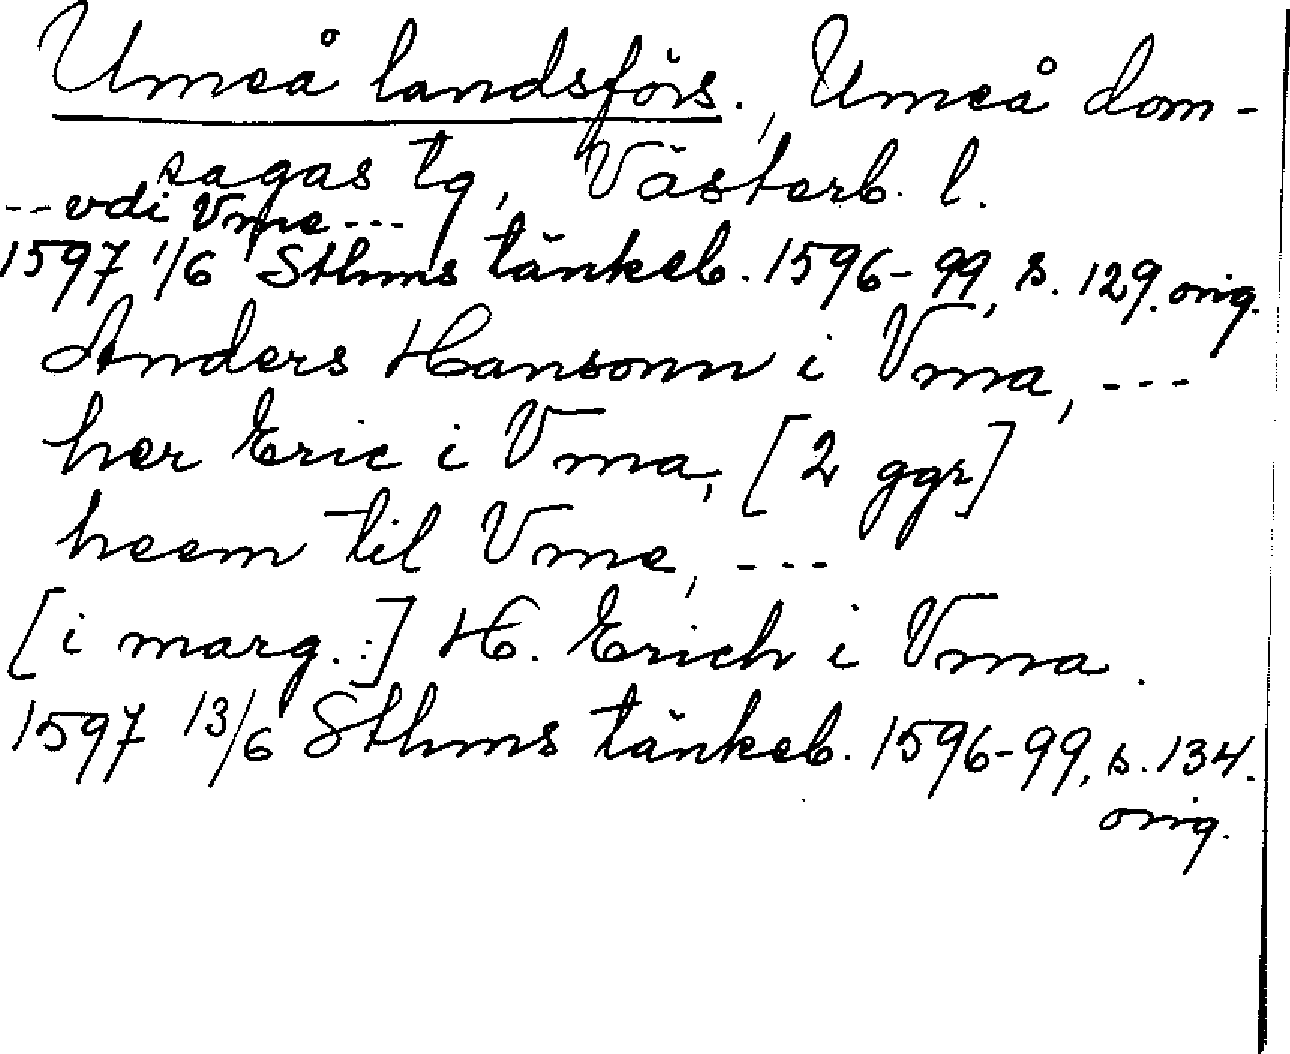 Umeå landsförs., Umeå dom-
sagas tg, Västerb. l.
--vdi Vme---
1597 1/6 Sthms tänkeb. 1596-99, s. 129. orig.
Anders Hansonn i Vma, ---
her Eric i Vma, [2 ggr]
heem til Vme, ---
[i marg.:] H. Erich i Vma.
1597 13/6 Sthms tänkeb. 1596-99, s. 134.
orig.